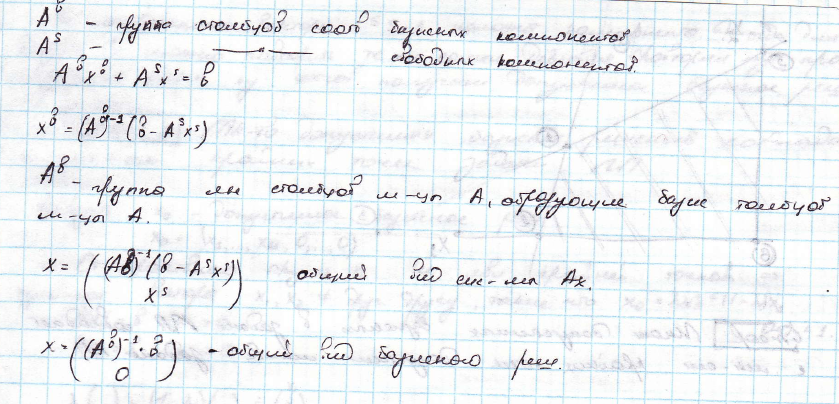 A^б - группа столбцов соотв базисных компонентов
A^s - —"— свободных компонентов.
A^б x^б + A^s x^s = b
x^б = (A^б)^-1 (b - A^s x^s)
A^б - группа лн столбцов м-цы A, образующие базис толбцов
м-цы A.
x = ((Aб)^-1 (b - A^s x^s) общий вид сис-мы Ax.
x^s)
x = ((A^б)^-1 · b - общий вид базисного реш.
0)